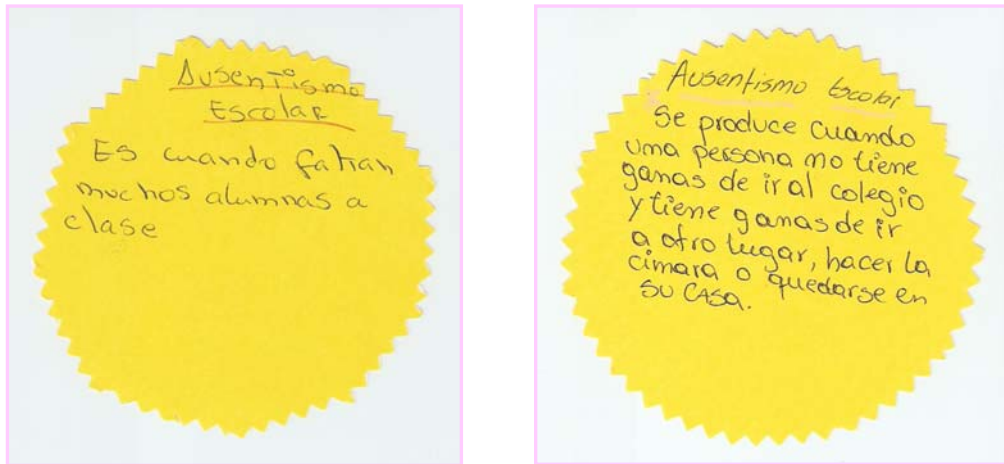 Ausentismo
Escolar
Es cuando faltan
muchos alumnas a
clase
Ausentismo Escolar
Se produce cuando
uma persona mo tiene
ganas de ir al colegio
y tiene ganas de ir
a otro lugar, hacer la
cimara o quedarse en
su casa.